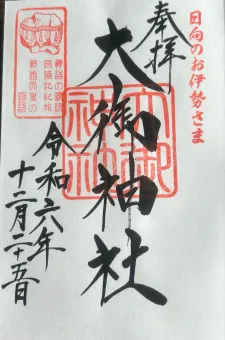 日向のお伊勢さま
奉拝
大御神社
大御神社
令和六年
十二月二十五日